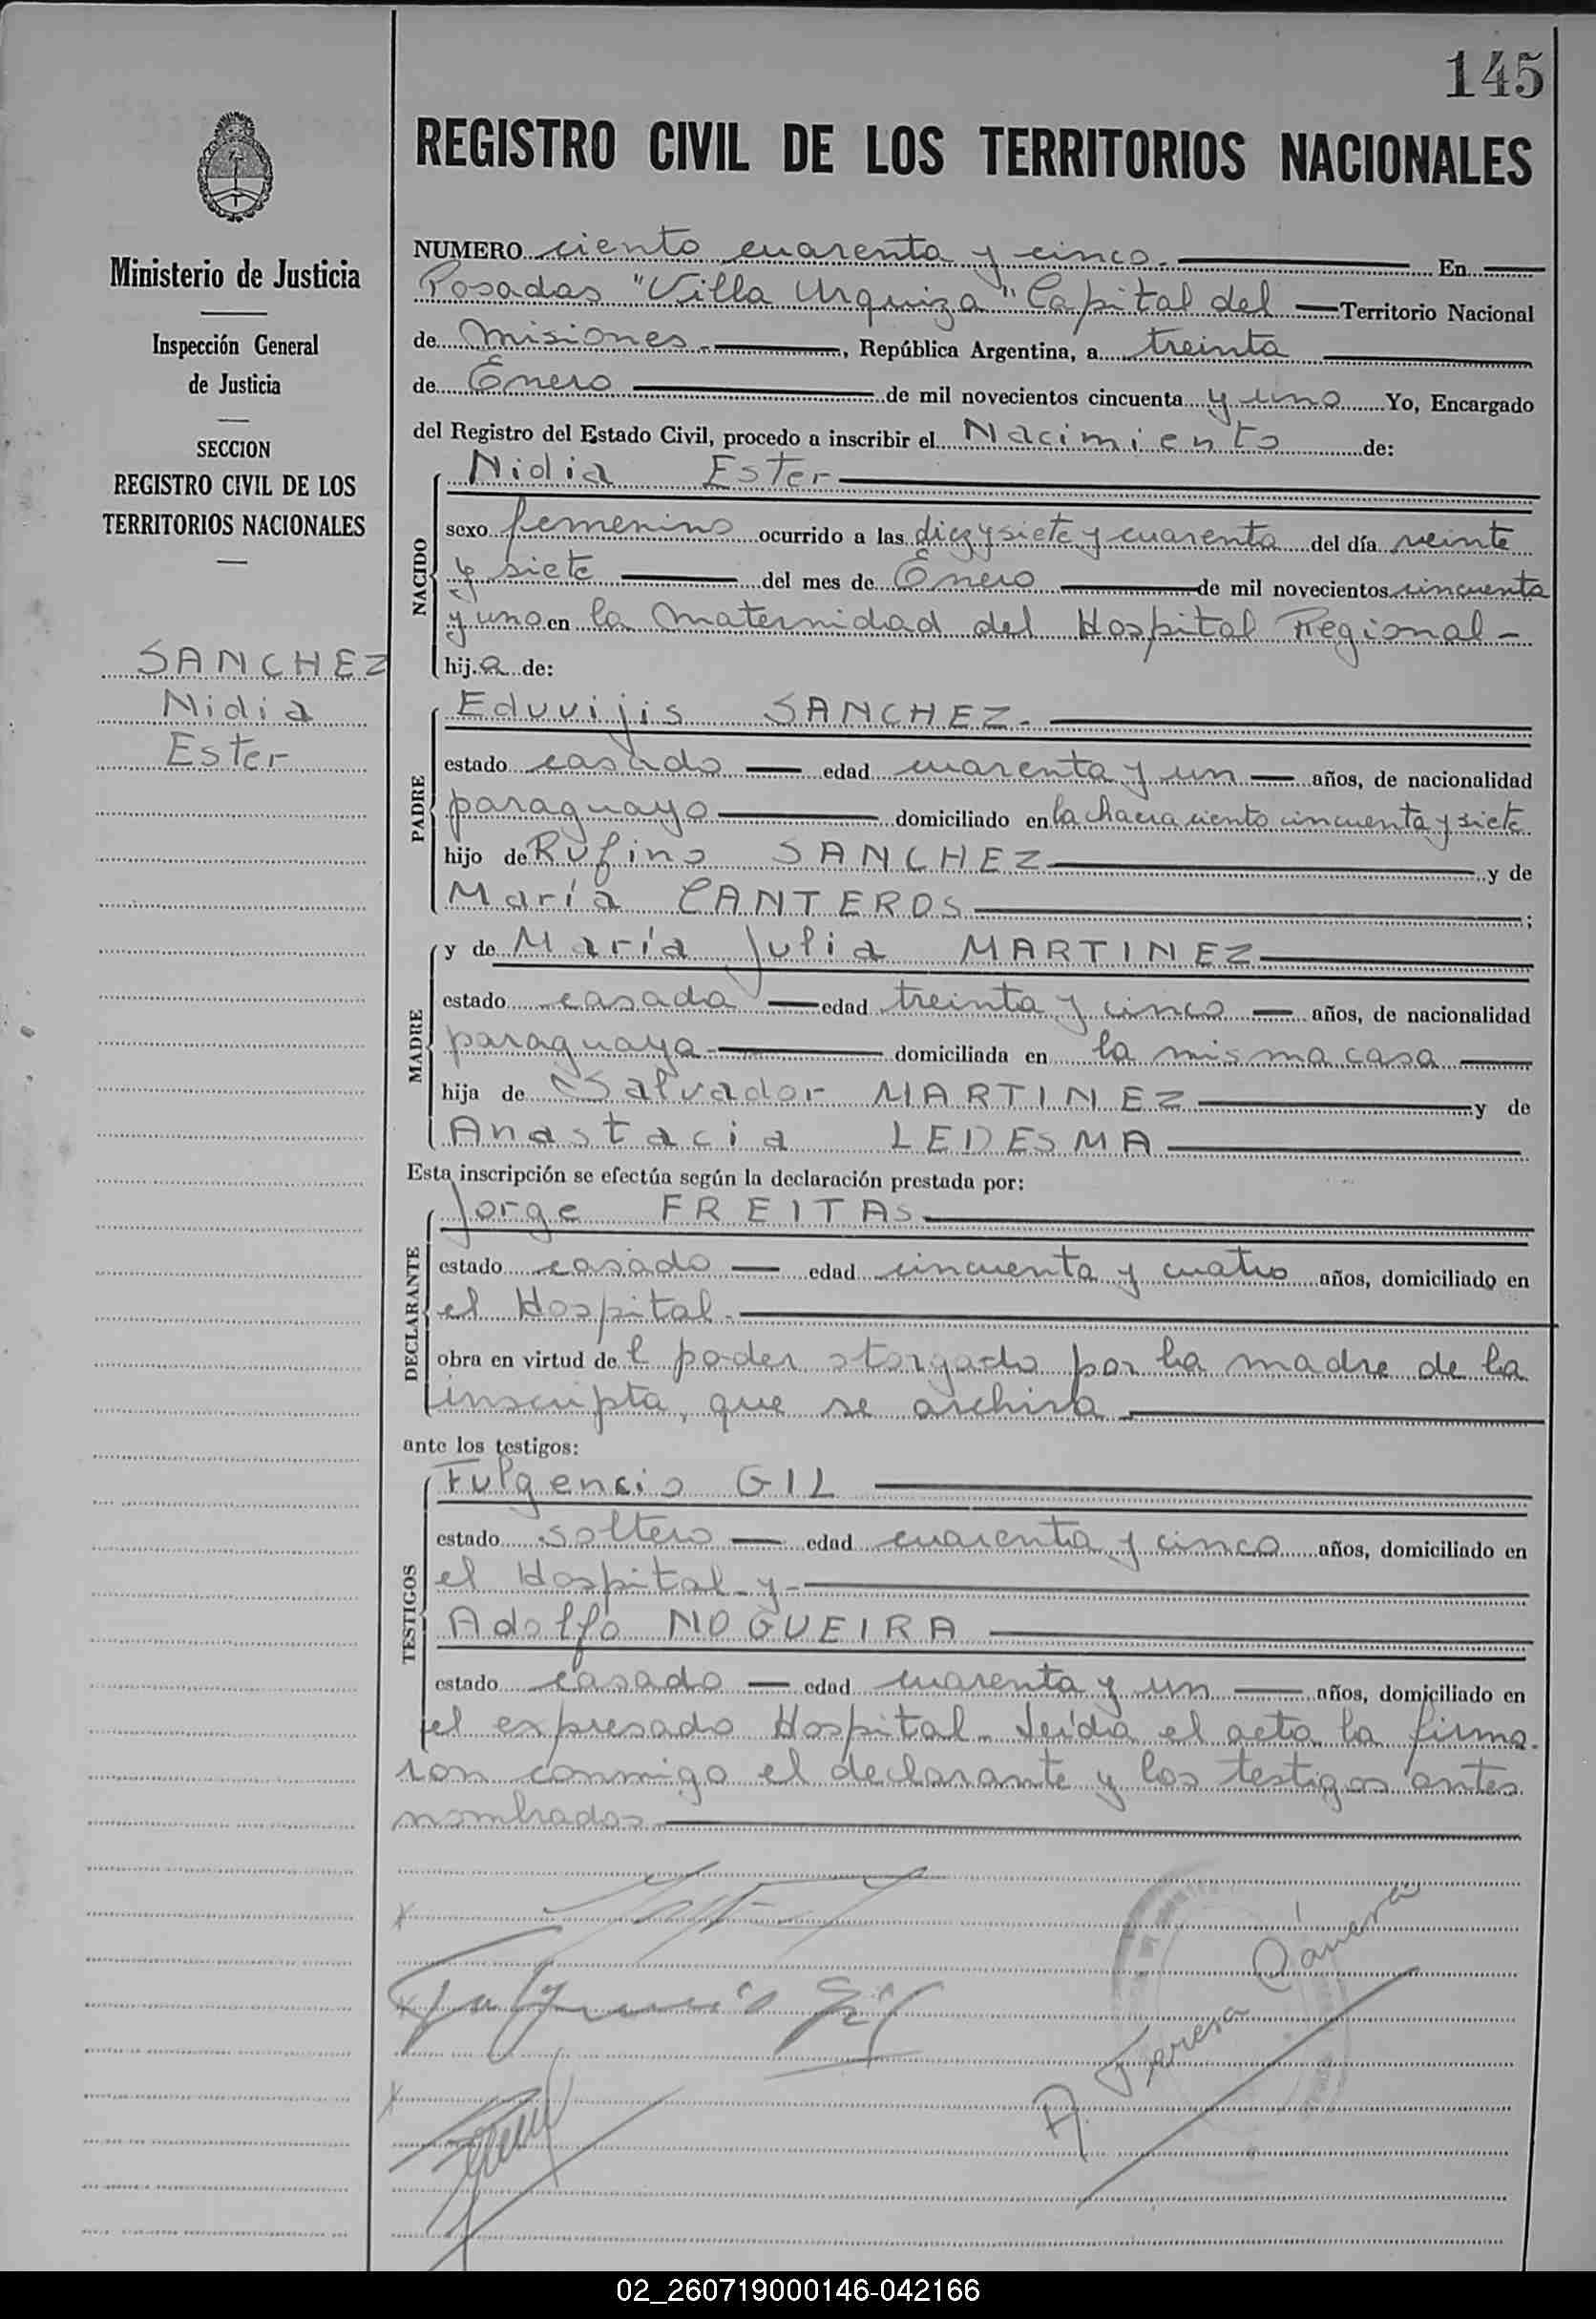 145
REGISTRO CIVIL DE LOS TERRITORIOS NACIONALES
Ministerio de Justicia
Inspección General
de Justicia
SECCION
REGISTRO CIVIL DE LOS
TERRITORIOS NACIONALES
SANCHEZ
Nidia
Ester
NUMERO ciento cuarenta y cinco. En
Posadas "Villa Urquiza" Capital del Territorio Nacional
de Misiones. , República Argentina, a treinta
de Enero de mil novecientos cincuenta y uno Yo, Encargado
del Registro del Estado Civil, procedo a inscribir el Nacimiento de:
NACIDO
Nidia Ester
sexo femenino ocurrido a las diez y siete y cuarenta del día veinte
y siete del mes de Enero de mil novecientos cincuenta
y uno en la maternidad del Hospital Regional -
hij a de:
PADRE
Eduvijis SANCHEZ.
estado casado edad cuarenta y un años, de nacionalidad
paraguayo domiciliado en la chacra ciento cincuenta y siete
hijo de Rufino SANCHEZ y de
María CANTEROS ;
MADRE
y de María Julia MARTINEZ
estado casada edad treinta y cinco años, de nacionalidad
paraguaya domiciliada en la misma casa
hija de Salvador MARTINEZ y de
Anastacia LEDESMA
Esta inscripción se efectúa según la declaración prestada por:
DECLARANTE
Jorge FREITAS
estado casado edad cincuenta y cuatro años, domiciliado en
el Hospital.
obra en virtud de l poder otorgado por la madre de la
inscripta, que se archiva
ante los testigos:
TESTIGOS
Fulgencio GIL
estado soltero edad cuarenta y cinco años, domiciliado en
el Hospital y
Adolfo NOGUEIRA
estado casado edad cuarenta y un años, domiciliado en
el expresado Hospital. Leída el acta la firma-
ron conmigo el declarante y los testigos antes
nombrados
Fulgencio Gil
A. Teresa
02_260719000146-042166